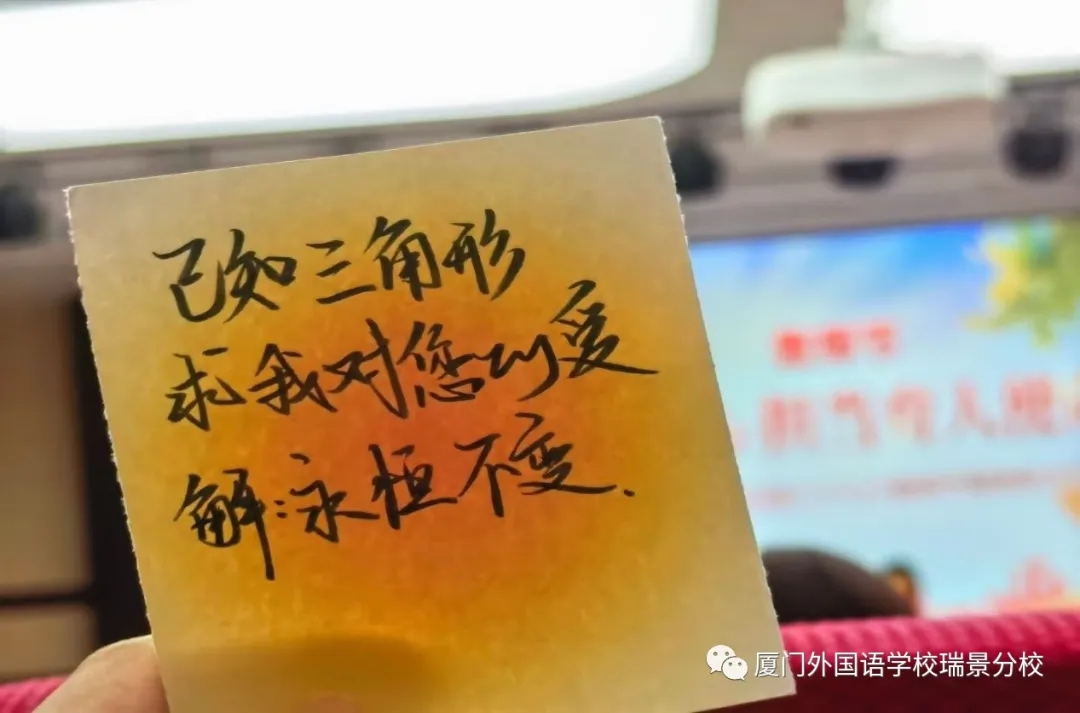 已知三角形
求我对您的爱
解:永恒不变.
厦门外国语学校瑞景分校